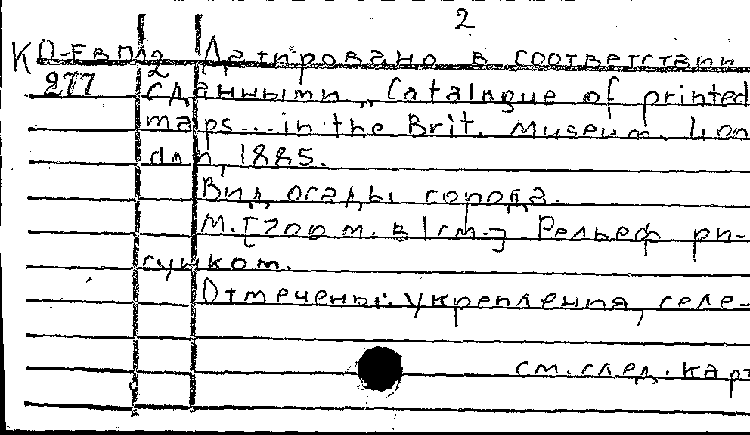 2
К О-ЕвП/2 Датировано в соответствии
277 с данными „Catalogue of printed
maps... in the Brit. Museum. Lon
don, 1885.
Вид осады города.
М.[200 м. в 1 см.] Рельеф ри-
сунком.
Отмечены: укрепления, селе-
см. след. карт